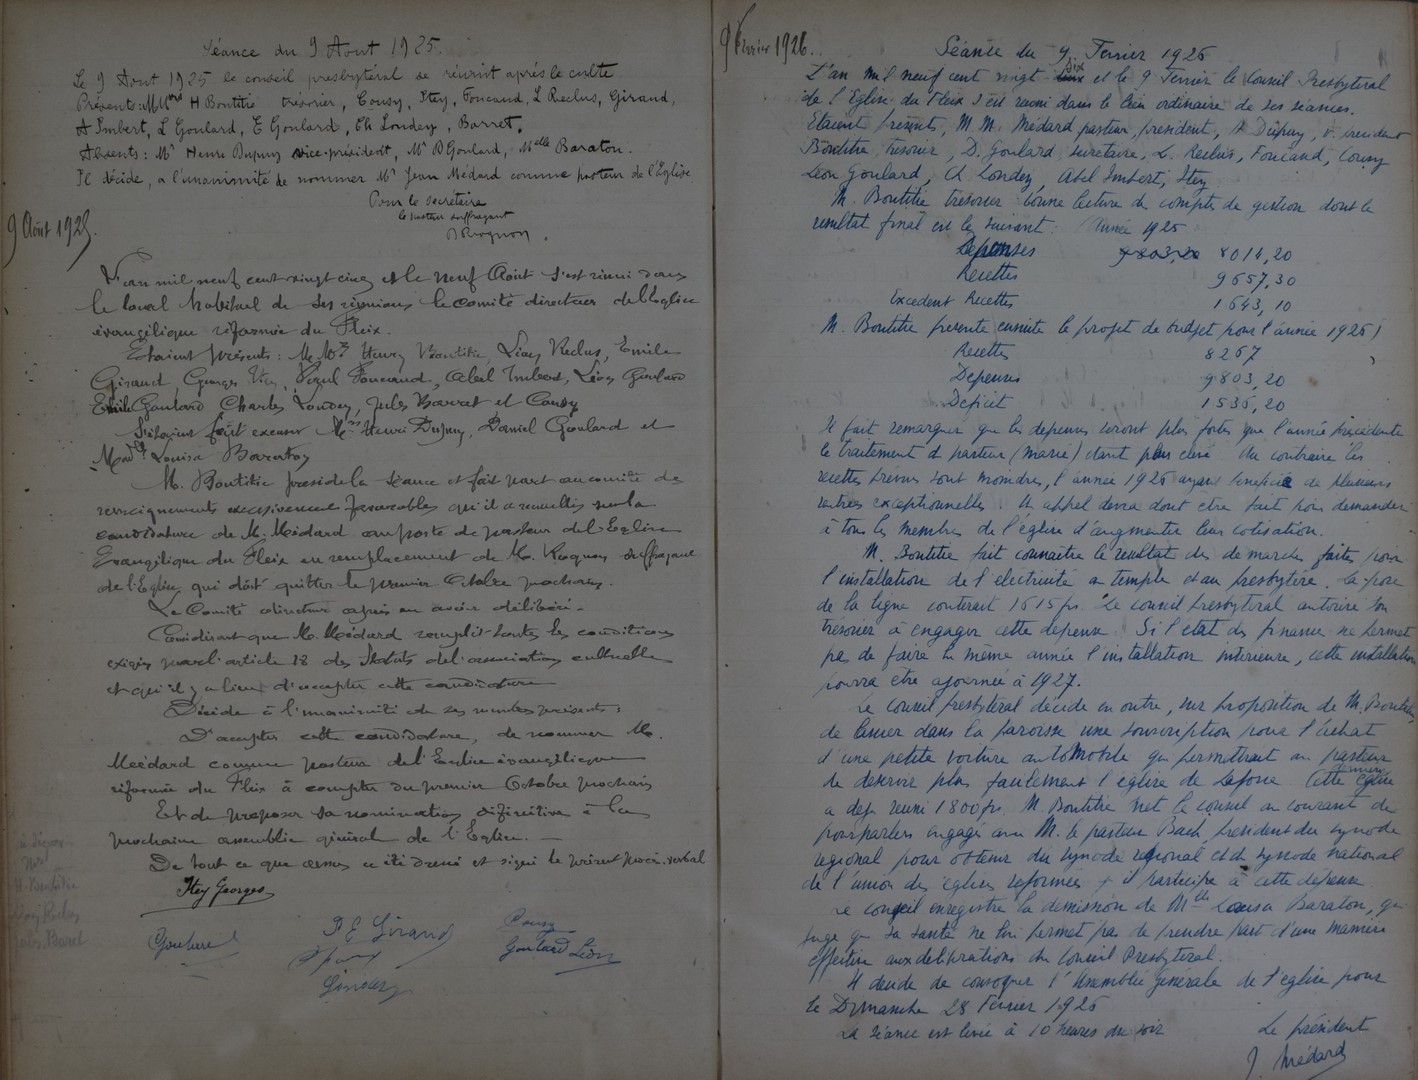 Séance du 9 Aout 1925.
Le 9 Aout 1925 le conseil presbytéral se réunit après le culte
Présents: MM. H Boutitie trésorier, Cousy, Itey, Foucaud, L Reclus, Giraud,
A Imbert, L Goulard, E Goulard, Ch Londey, Barret.
Absents: Mr Henri Dupuy vice-président, Mr D Goulard, Melle Baraton.
Il décide, a l'unanimité de nommer Mr Jean Médard comme pasteur de l'Eglise
Pour le secrétaire
le pasteur suffragant
Rognon.
9 Août 1925.
L'an mil neuf cent vingt cinq et le neuf Août s'est réuni dans
le local habituel de ses réunions le comité directeur de l'Eglise
évangélique réformée du Fleix.
Etaient présents: MMrs Henry Boutitie, Liay Reclus, Emile
Giraud, Georges Itey, Foucaud, Abel Imbert, Léon Goulard
Emile Goulard Charles Londey, Jules Barret et Cousy
S'étaient fait excuser Mrs Henri Dupuy, Daniel Goulard et
Madlle Louisa Baraton
M. Boutitie préside la séance et fait part au comité de
renseignements excessivement favorables qu'il a recueillis sur la
candidature de M. Médard au poste de pasteur de l'Eglise
Evangélique du Fleix en remplacement de M. Rognon suffragant
de l'Eglise qui doit quitter le premier Octobre prochain.
Le Comité directeur après en avoir délibéré.
Considérant que M. Médard remplit toutes les conditions
exigées par l'article 18 des Statuts de l'association cultuelle
et qu'il y a lieu d'accepter cette candidature
Décide à l'unanimité de ses membres présents:
D'accepter cette candidature, de nommer M.
Médard comme pasteur de l'Eglise évangélique
réformée du Fleix à compter du premier Octobre prochain
Et de proposer sa nomination définitive à la
prochaine assemblée général de l'Eglise.
De tout ce que dessus a été dressé et signé le présent procès-verbal
à signer
H. Boutitie
Reclus
Jules Barret
Itey Georges
Goulard
E Giraud
Cousy
Goulard Léon
Londey
9 Février 1926.
Séance du 9 Fevrier 1926
L'an mil neuf cent vingt six et le 9 Fevrier le Conseil Presbyteral
de l'Eglise du Fleix s'est reuni dans le lieu ordinaire de ses séances.
Etaient présents, M.M. Médard pasteur, président, H Dupuy, v. président
Boutitie, trésorier, D. Goulard secretaire, L. Reclus, Foucaud, Cousy
Léon Goulard, Ch. Londey, Abel Imbert, Itey
M. Boutitie tresorier donne lecture du compte de gestion dont le
resultat final est le suivant: Année 1925
Depenses 9803,20 8014,20
Recettes 9657,30
Excedent Recettes 1643,10
M. Boutitie presente ensuite le projet de budget pour l'année 1926)
Recettes 8267
Depenses 9803,20
Deficit 1535,20
Il fait remarquer que les depenses seront plus fortes que l'année précédente
le traitement d pasteur (marié) étant plus elevé. Au contraire les
recettes prévues sont moindres, l'année 1925 ayant beneficié de plusieurs
rentrées exceptionnelles. Un appel devra dont etre fait pour demander
à tous les membres de l'église d'augmenter leur cotisation.
M. Boutitie fait connaître le resultat des demarches faites pour
l'installation de l'electricité au temple et au presbytère. La pose
de la ligne couterait 1615 frs. Le conseil Presbytéral autorise son
trésorier à engager cette dépense. Si l'etat des finances ne permet
pas de faire la même année l'installation interieure, cette installation
pourra etre ajournée à 1927.
Le conseil presbyteral décide en outre, sur proposition de M. Boutitie,
de lancer dans la paroisse une souscription pour l'achat
d'une petite voiture automobile qui permettrait au pasteur
de desservir plus facilement l'eglise de Laforce. Cette église
a dejà reuni 1800 frs. M. Boutitie met le conseil au courant de
pourparlers engagés avec M. le pasteur Bach, president du synode
regional pour obtenir du synode regional et du synode national
de l'union des eglises reformées qu'il participe à cette depense
Le conseil enregistre la demission de Mlle Louisa Baraton, qui
juge que sa santé ne lui permet pas de prendre part d'une manière
effective aux delibérations du Conseil Presbyteral.
Il decide de convoquer l'Assemblée Générale de l'église pour
le Dimanche 28 Fevrier 1926
La séance est levée à 10 heures du soir
Le président
J. Médard